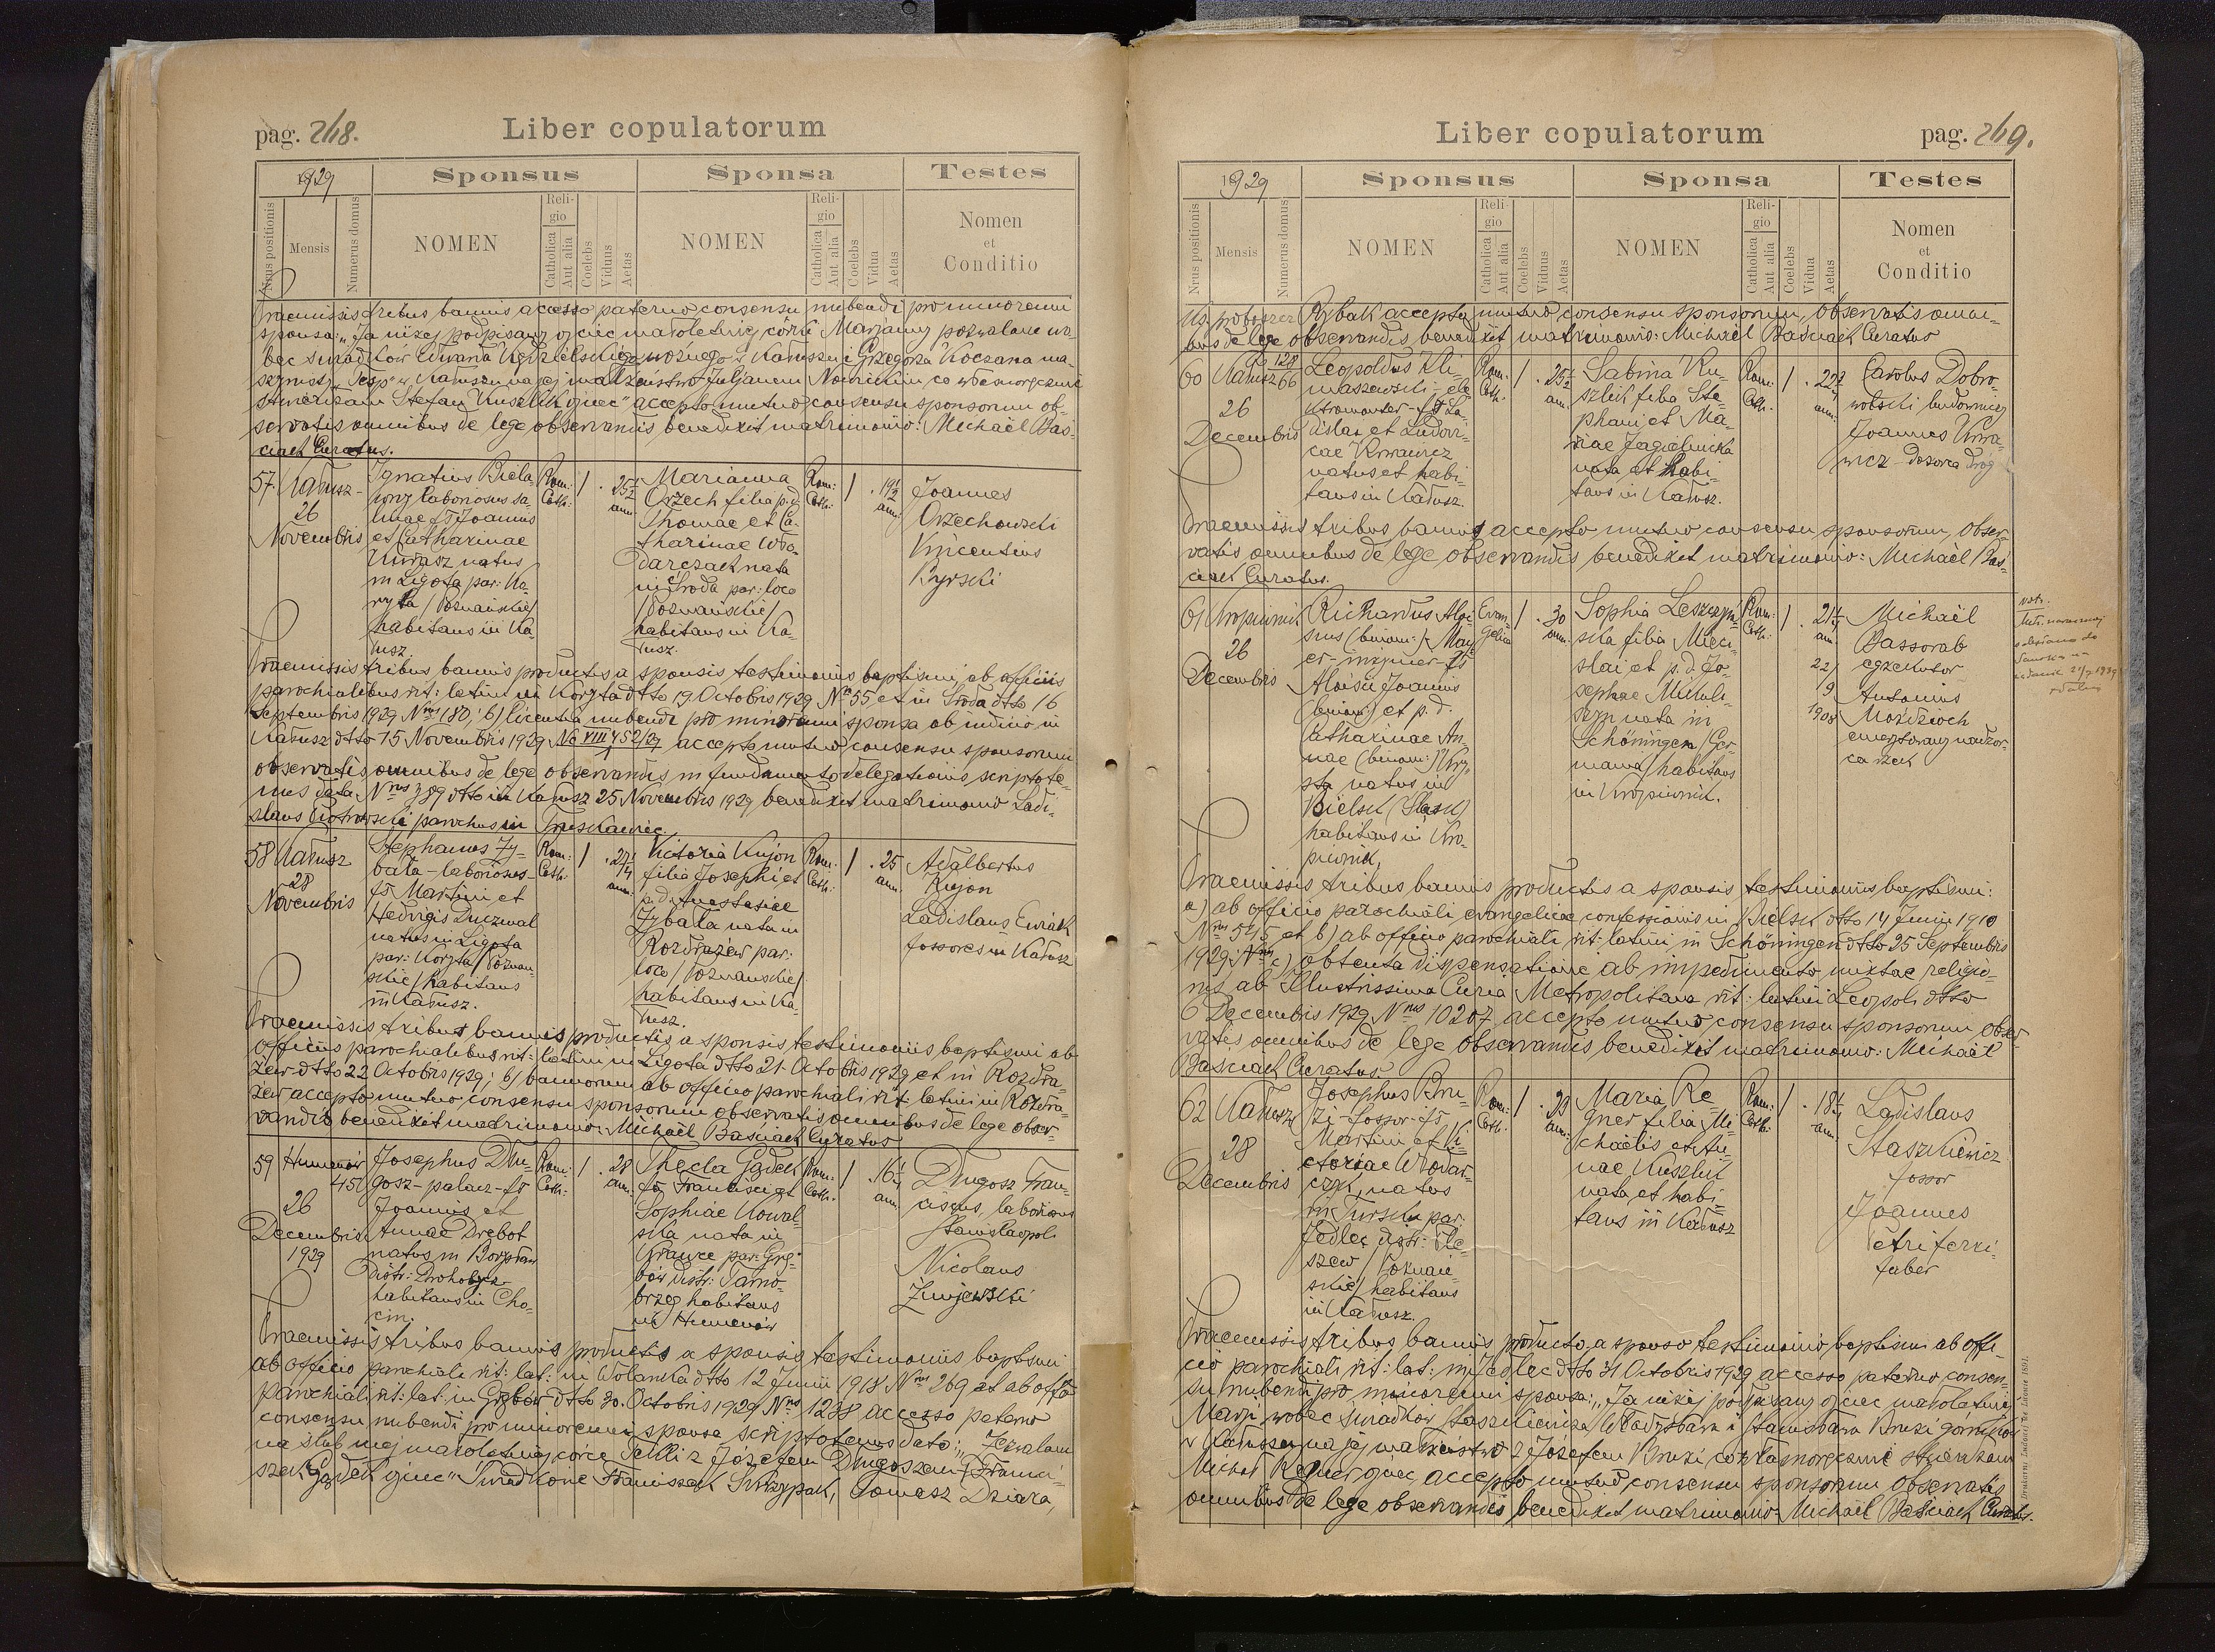 pag. 248.
Liber copulatorum
1929
Sponsus
Sponsa
Testes
Nrus positionis
Mensis
Numerus domus
NOMEN
Religio
Catholica
Aut alia
Coelebs
Viduus
Aetas
NOMEN
Religio
Catholica
Aut alia
Coelebs
Vidua
Aetas
Nomen
et
Conditio
Praemissis tribus bannis accesso paterno consensu nubendi pro minorenni
sponsa: „Ja niżej podpisany ojciec małoletniej córki Marjanny pozwalam wo-
bec świadków Edwarda woźnego w Kałuszu i Grzegorza Koczana ma-
szynisty „Tesp" w Kałuszu na jej małżeństwo z Juljanem Nowickim co własnoręcznie
stwierdzam Stefan Kuszlik ojciec" accepto mutuo consensu sponsorum ob-
servatis omnibus de lege observandis, benedixit matrimonio: Michaël Baś-
ciach Curatus.
57 Kałusz
26
Novembris
Ignatius Biela-
wny laboriosus sa-
linae fs Joannis
et Catharinae
Kurasz natus
in Ligota par: Ko-
ryta /Poznańskie/
habitans in Ka-
łusz.
Rom: Cath:
1
25 1/2 ann:
Marianna
Orzech filia p.d.
Thomae et Ca-
tharinae Wło-
darczak nata
in Środa par: loco
/Poznańskie/
habitans in Ka-
łusz.
Rom: Cath:
1
19 1/2 ann:
Joannes
Orzechowski
Vincentius
Byrski
Praemissis tribus bannis productis a sponsis testimoniis baptismi ab officiis
parochialibus rit: latini in Koryta dtto 19 Octobris 1929 Nro 55 et in Środa dtto 16
Septembris 1929 Nrus 180; b) licentia nubendi pro minorenni sponsa ab iudicio in
Kałusz dtto 15 Novembris 1929 Nc VIII 452/29 accepto mutuo consensu sponsorum
observatis omnibus de lege observandis in fundamento delegationis scripto te-
nus data Nrus 389 dtto in Kałusz 25 Novembris 1929 benedixit matrimonio Ladi-
slaus Piotrowski parochus in Truskawiec.
58 Kałusz
28
Novembris
Stephanus Zy-
bała - laboriosus -
fs Martini et
Hedvigis Duczmal
natus in Ligota
par: Koryta /Poznań-
skie/ habitans
in Kałusz.
Rom: Cath:
1
27 1/4 ann:
Victoria Kujon
filia Josephi et
p.d. Anastasiae
Zybała nata in
Rozdrażew par:
loco /Poznańskie/
habitans in Ka-
łusz.
Rom: Cath:
1
25 ann:
Adalbertus
Kujon
Ladislaus Ewiak
fossores in Kałusz
Praemissis tribus bannis productis a sponsis testimoniis baptismi ab
officiis parochialibus rit: latini in Ligota dtto 21 Octobris 1929 et in Rozdra-
żew dtto 22 Octobris 1929; b) bannorum ab officio parochiali rit: latini in Rozdra-
żew accepto mutuo consensu sponsorum observatis omnibus de lege obser-
vandis benedixit matrimonio: Michaël Baściach Curatus
59 Humenów
451
26
Decembris
1929
Josephus Dłu-
gosz - palacz - fs
Joannis et
Annae Drebot
natus in Borysław
distr: Drohobycz
habitans in Cho-
cin.
Rom: Cath:
1
28 ann:
Thecla Gądek
fa Francisci et
Sophiae Kowal-
ska nata in
Krawce par: Grę-
bów distr: Tarno-
brzeg habitans
in Humenów
Rom: Cath:
1
16 1/4 ann:
Długosz Fran-
ciscus, laboriosus
Stanislaopoli
Nicolaus
Żmijewski
Praemissis tribus bannis productis a sponsis testimoniis baptismi
ab officio parochiali rit: lat: in Wolanka dtto 12 Junii 1918 Nrus 269 et ab officio
parochiali rit: lat: in Grębów dtto 30. Octobris 1929 Nrus 1238 accesso paterno
consensu nubendi pro minorenni sponsa scripto tenus dato: „Zezwalam
na ślub mej małoletniej córce Tekli z Józefem Długoszem Franci-
szek Gądek ojciec" Świadkowie Stanisszek Skrzypak, Tomasz Dziara,
Liber copulatorum
pag. 249.
1929
Sponsus
Sponsa
Testes
Nrus positionis
Mensis
Numerus domus
NOMEN
Religio
Catholica
Aut alia
Coelebs
Viduus
Aetas
NOMEN
Religio
Catholica
Aut alia
Coelebs
Vidua
Aetas
Nomen
et
Conditio
Ks. proboszcz Rybak accepto mutuo consensu sponsorum, observatis omni-
bus de lege observandis, benedixit matrimonio: Michaël Baściach Curatus
60 Kałusz 128/66
26
Decembris
Leopoldus Kli-
maszewski - ele-
ktromonter - fs La-
dislai et Ludovi-
cae Krwawicz
natus et habi-
tans in Kałusz.
Rom: Cath:
1
25 1/2 ann:
Sabina Ku-
szlik filia Ste-
phani et Ma-
riae Jagielnicka
nata et habi-
tans in Kałusz.
Rom: Cath:
1
22 ann:
Carolus Dobro-
wolski budowniczy
Joannes Krwa-
wicz - dozorca dróg
Praemissis tribus bannis accepto mutuo consensu sponsorum, obser-
vatis omnibus de lege observandis benedixit matrimonio: Michaël Baś-
ciach Curatus.
61 Kropiwnik
26
Decembris
Richardus Aloi-
sius (binom:) May-
er - inżynier - fs
Aloisii Joannis
(binom:) et p.d.
Catharinae An-
nae (binom:) Kry-
sta natus in
Bielsk (Śląsk)
habitans in Kro-
piwnik.
Evangelica
1
30 ann:
Sophia Leszczyń-
ska filia Mieci-
slai et p.d. Jo-
sephae Mikuli-
szyn nata in
Schöningen /Ger-
mania/ habitans
in Kropiwnik.
Rom: Cath:
1
21 1/4 ann:
22/
9
1908
Michaël
Bassorab
egzekutor
Antonius
Moździoch
emerytowany nadzor-
ca rzek
Praemissis tribus bannis productis a sponsis testimoniis baptismi:
a) ab officio parochiali evangelicae confessionis in Bielsk dtto 14 Junii 1910
Nrus 545 et b) ab officio parochiali rit: latini in Schöningen dtto 25 Septembris
1929 Nrus c) obtenta dispensatione ab impedimento mixtae religio-
nis ab Illustrissima Curia Metropolitana rit: latini Leopoli dtto
6 Decembris 1929 Nrus 10207 accepto mutuo consensu sponsorum obser-
vatis omnibus de lege observandis benedixit matrimonio: Michaël
Baściach Curatus
62 Kałusz
28
Decembris
Josephus Bru-
zi - fossor - fs
Martini et Vi-
ctoriae Włodar-
czyk, natus
in Tursku par:
Jedlec distr: Ple-
szew /Poznań-
skie/ habitans
in Kałusz.
Rom: Cath:
1
23 ann:
Maria Re-
gner filia Mi-
chaëlis et An-
nae Kuszlik
nata et habi-
tans in Kałusz
Rom: Cath:
1
18 1/4 ann:
Ladislaus
Staszkiewicz
fossor
Joannes
Petri ferri-
faber
Praemissis tribus bannis producto a sponso testimonio baptismi ab offi-
cio parochiali rit: lat: in Jedlec dtto 31 Octobris 1929 accesso paterno consen-
su nubendi pro minorenni sponsa: „Ja niżej podpisany ojciec małoletniej
Marji wobec świadków Staszkiewicza Władysława i Stanisława Bruzi górników
w Kałuszu na jej małżeństwo z Józefem Bruzi, co własnoręcznie stwierdzam
Michał Regner ojciec accepto mutuo consensu sponsorum observatis
omnibus de lege observandis benedixit matrimonio: Michaël Baściach Curatus.